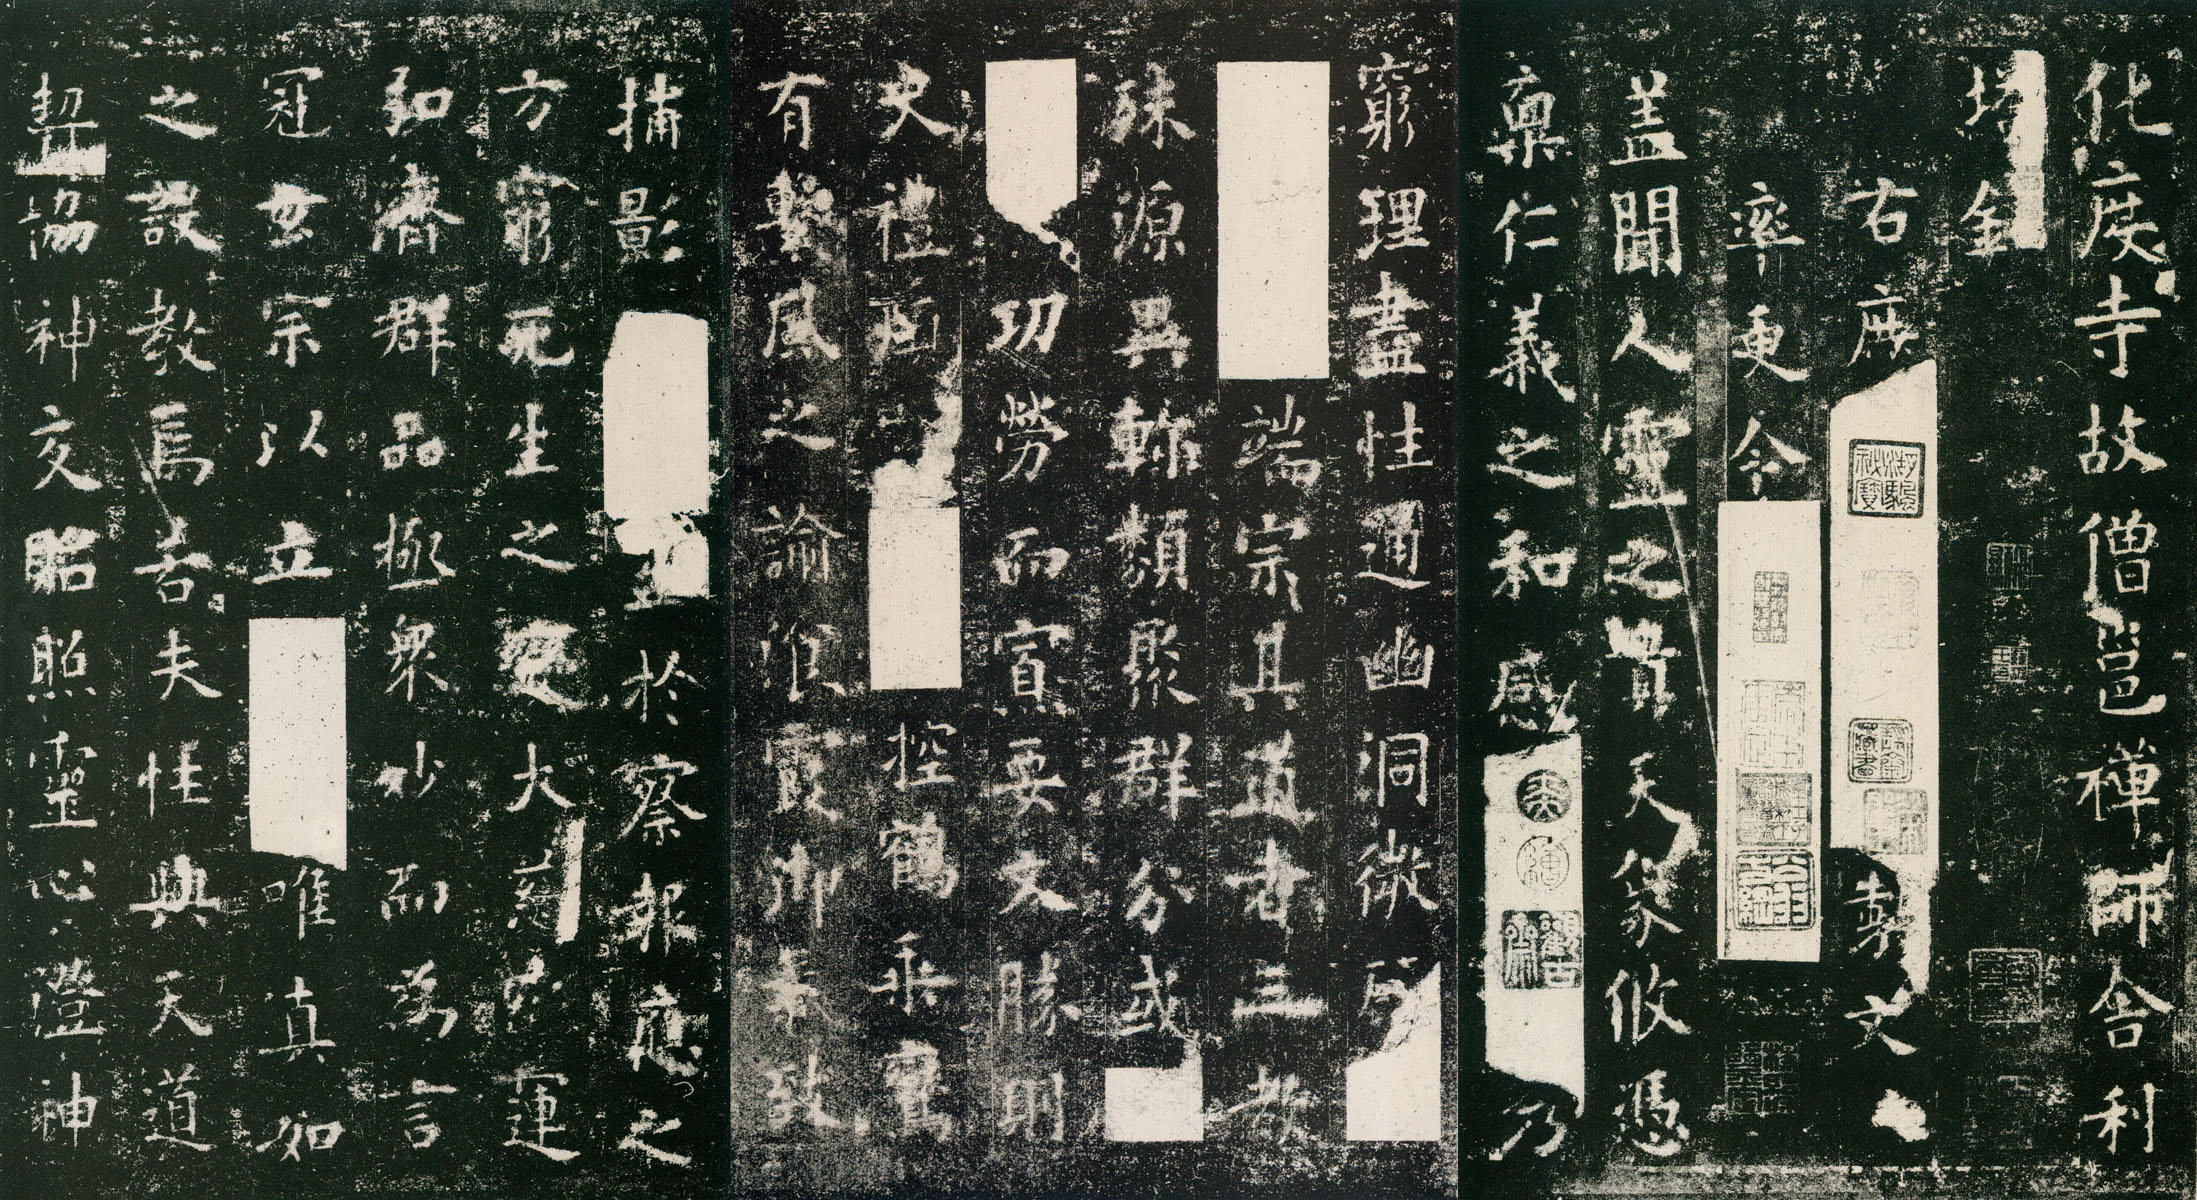 化度寺故僧邕禪師舍利
塔銘
右庶製文
率更令
蓋聞人靈之貴天象攸憑
稟仁義之和感乃
窮理盡性通幽洞微
端宗其道者三教
殊源異軫類聚群分或
功勞而寡要文勝則
史禮控鶴乘鸞
有繫風之諭飡霞御氣致
捕影於察報應之
方窮死生之變大慈弘運
和濟群品極眾妙而為言
冠玄宗以立唯真如
之設教焉若夫性與天道
契協神交貽照靈心澄神